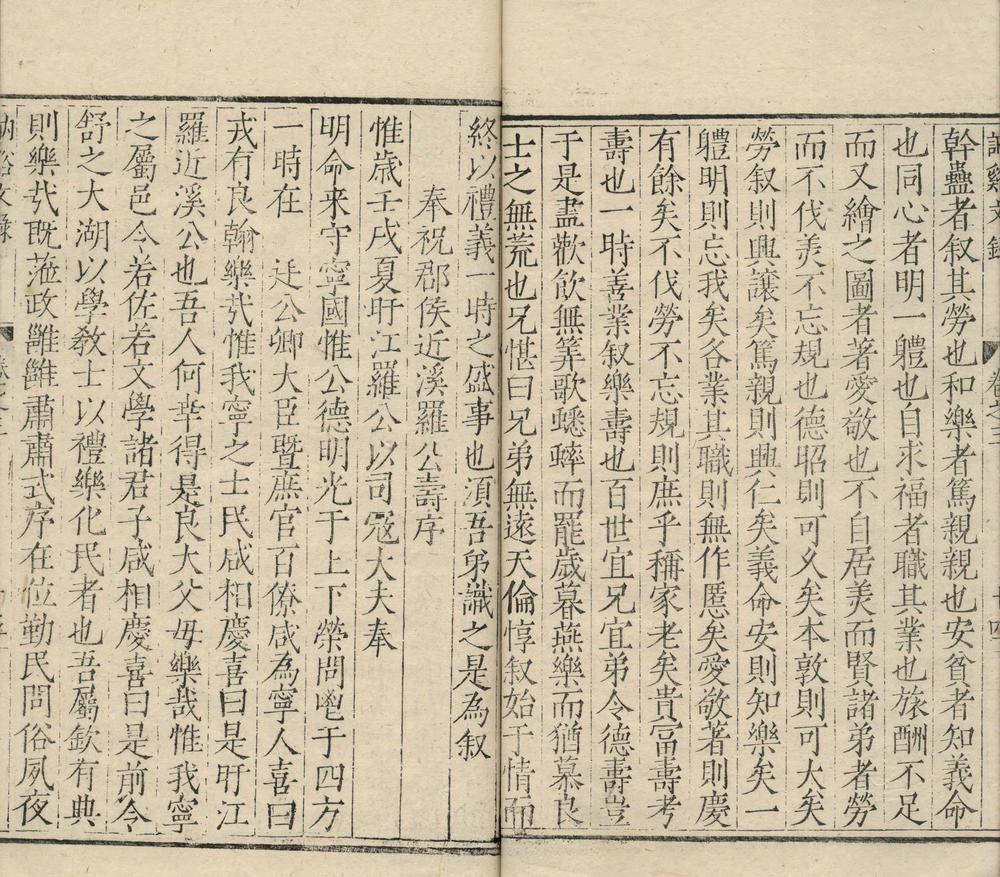 幹蠱者叙其勞也和樂者篤親親也安貧者知義命
也同心者明一軆也自求福者職其業也旅酬不足
而又繪之圖者著愛敬也不自居羙而賢諸弟者勞
而不伐羙不忘規也德昭則可乆矣本敦則可大矣
勞叙則興讓矣篤親則興仁矣義命安則知樂矣一
軆明則忘我矣各業其職則無作慝矣愛敬著則慶
有餘矣不伐勞不忘規則庶乎稱家老矣貴富壽考
壽也一時善業叙樂壽也百世宜兄宜弟令德壽豈
于是盡歡飲無筭歌蟋蟀而罷歲暮燕樂而猶慕良
士之無荒也兄惎曰兄弟無遠天倫惇叙始于情而
終以禮義一時之盛事也湏吾弟識之是為叙
奉祝郡侯近溪羅公壽序
惟歲壬戌夏盱江羅公以司冦大夫奉
明命来守寧國惟公德明光于上下榮問鬯于四方
一時在 廷公卿大臣暨庶官百僚咸為寧人喜曰
戎有良翰樂㢤惟我寧之士民咸相慶喜曰是盱江
羅近溪公也吾人何幸得是良大父母樂哉惟我寧
之屬邑令若佐若文學諸君子咸相慶喜曰是前令
舒之大湖以學教士以禮樂化民者也吾屬欽有典
則樂㢤既蒞政雝雝肅肅式序在位勤民問俗夙夜